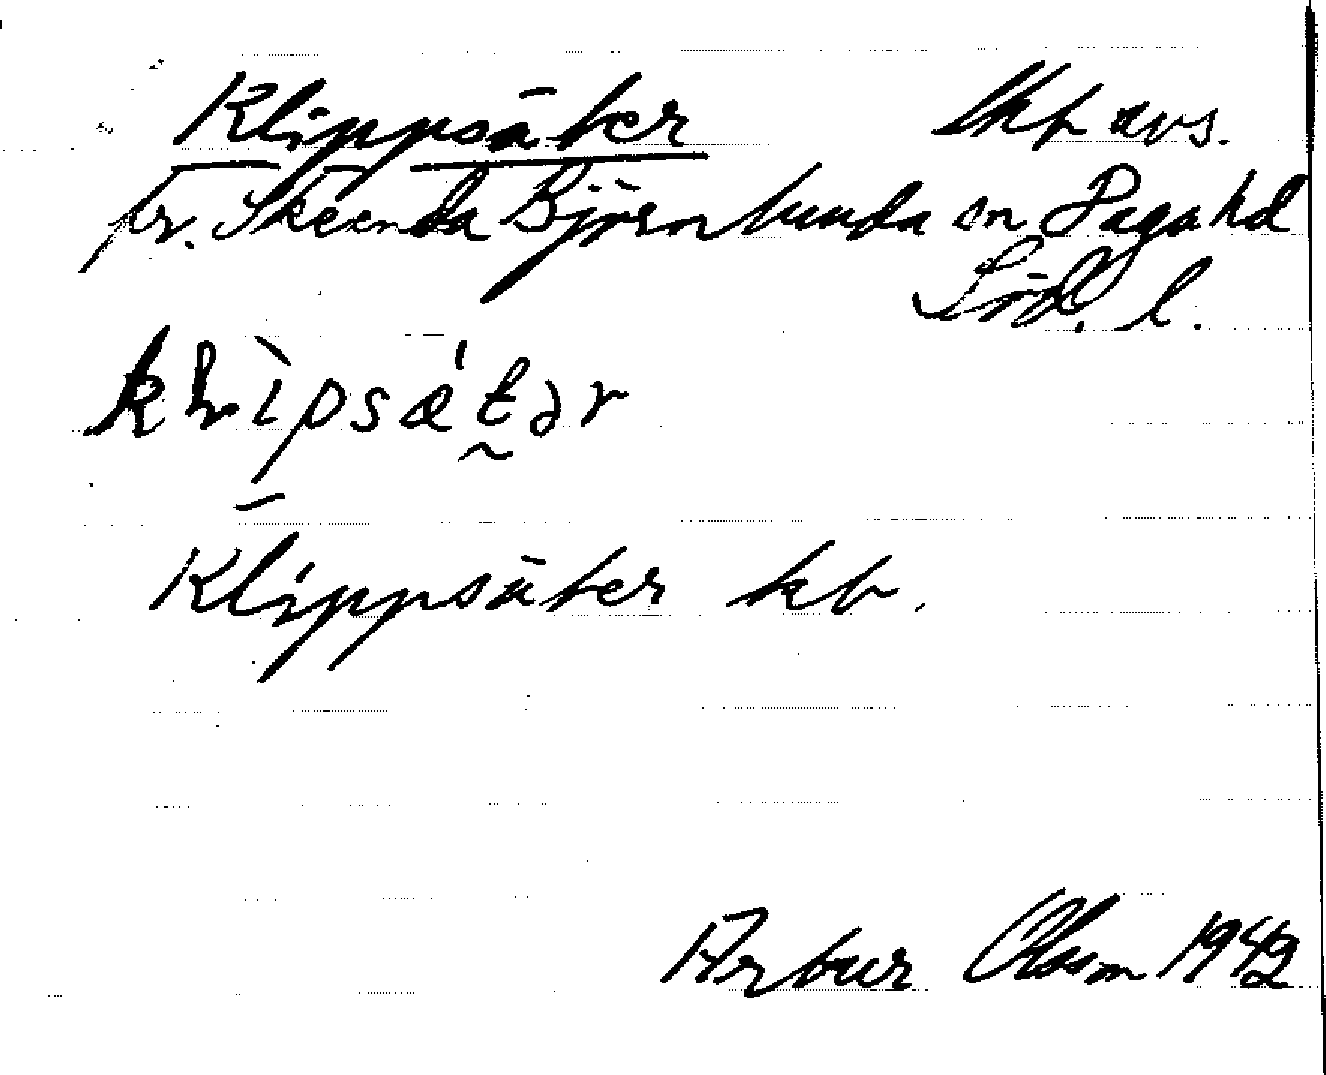 Klippsäter Skt avs.
fr. Skeenda Björnlunda sn Daga hd
Söd. l.
klìpsæ´tər
Klippsäter kb.
Artur Olsson 1942